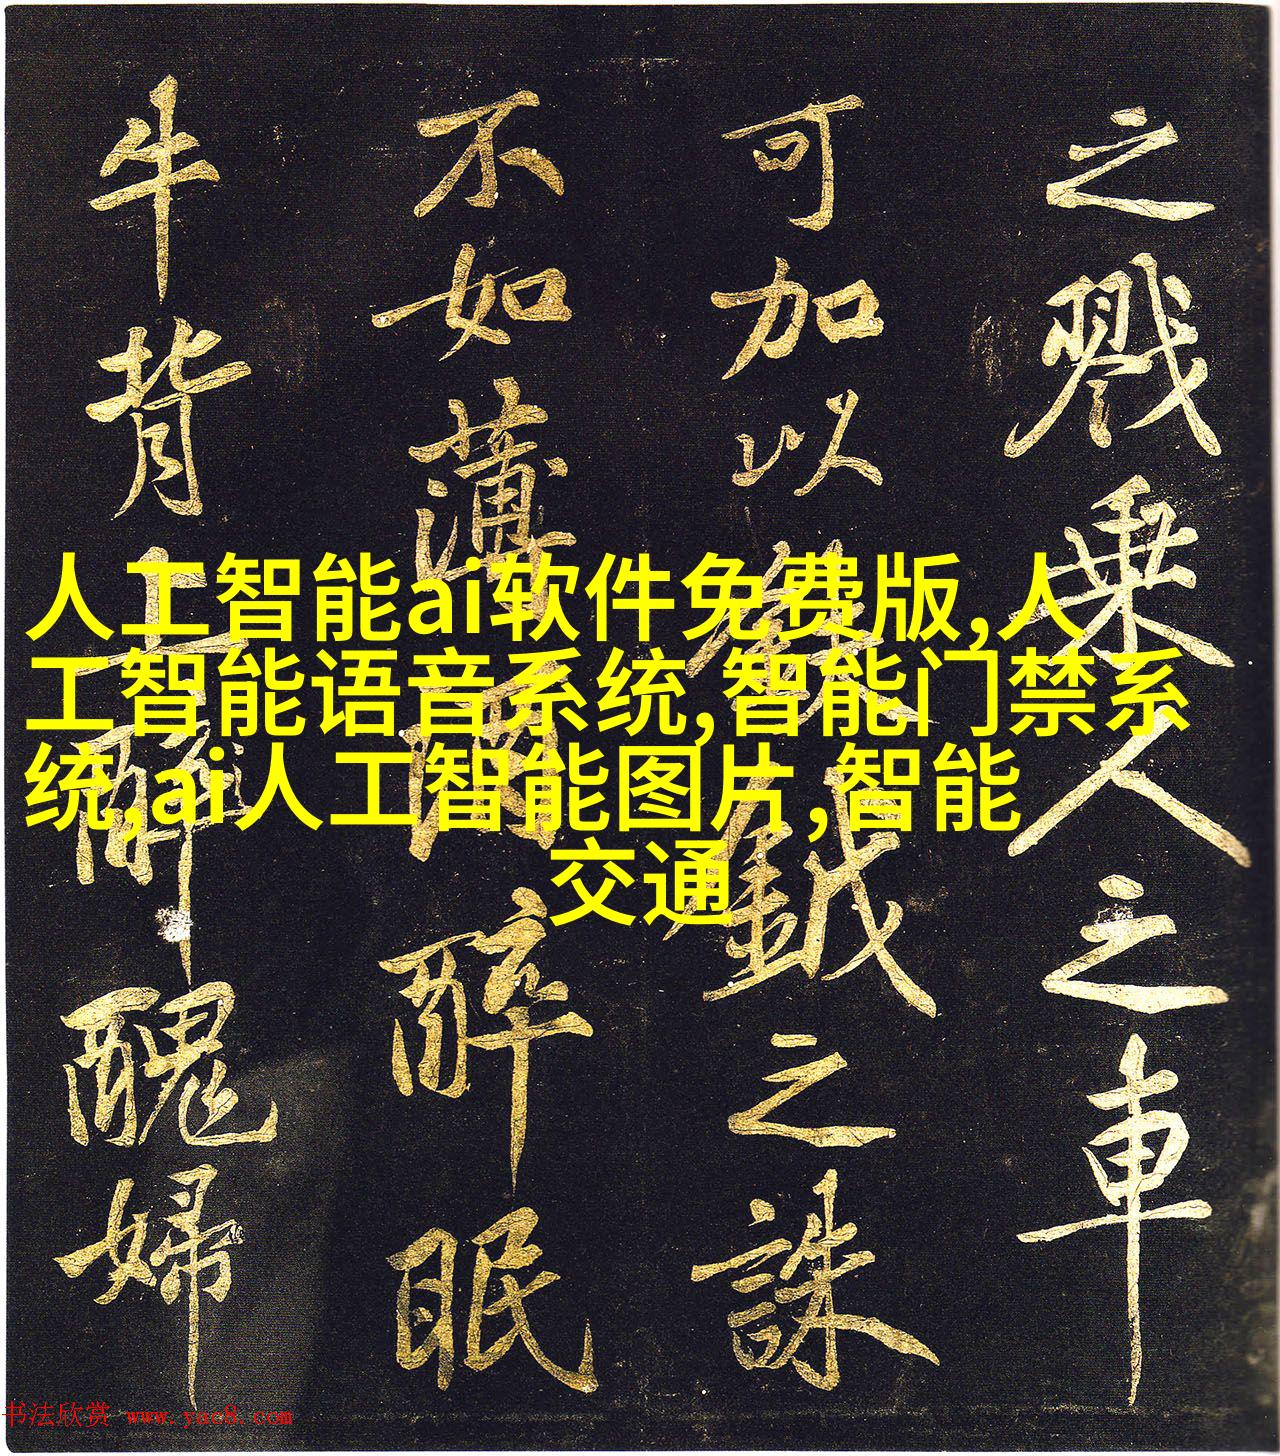 人工智能ai软件免费版,人
工智能语音系统,智能门禁系
统,ai人工智能图片,智能
交通
之戮乘人之車
可加以鉞之誅
不如薄醉眠
牛背上醉醜婦
书法欣赏 www.yac8.com